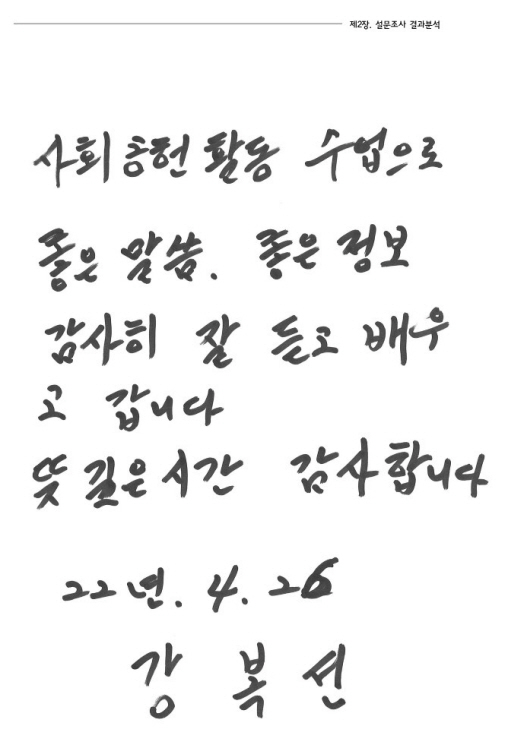 제2장. 설문조사 결과분석
사회 공헌 활동 수업으로
좋은 말씀. 좋은 정보
감사히 잘 듣고 배우
고 갑니다
뜻 깊은 시간 감사합니다
22년. 4. 26
강 복 선